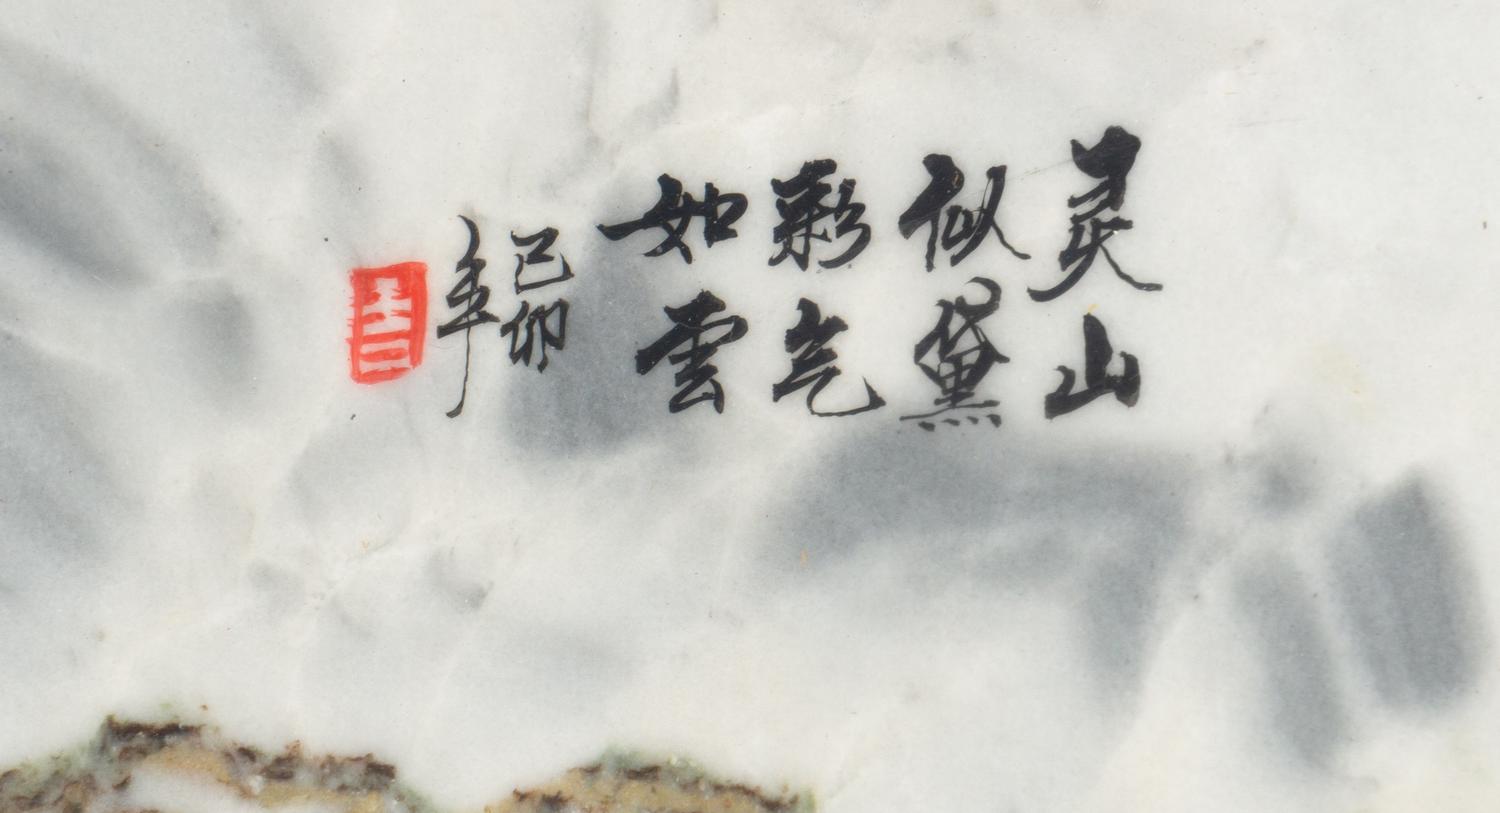 灵山
似黛
彩气
如雲
己卯
年